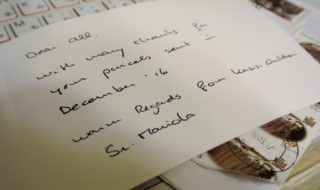 Dear all.
with many thanks for
your parcels sent in
December '16
warm Regards from Kasisi children
Sr. Mariola